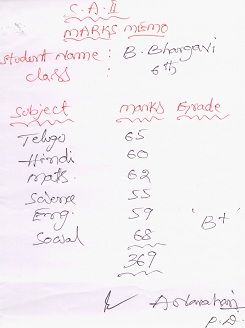 S.A.II
MARKS MEMO
Student name : B. Bhargavi
Class : 6th
Subject marks Grade
Telugo 65
Hindi 60
Mats 62
Science 55
Eng. 59 'B+'
Social 68
369